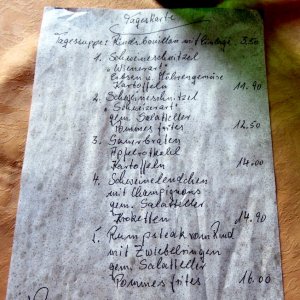 Tageskarte
Tagessuppe: Rindsbouillon mit Einlage 3.50
1. Schweineschnitzel
"Wienerart"
Erbsen u. Möhrengemüse
Kartoffeln 11.90
2. Schweineschnitzel
"Schweizerart"
gem. Salatteller
Pommes frites 12.50
3. Gänsebraten
Apfelrotkohl
Kartoffeln 14.00
4. Schweinelendchen
mit Champignons
gem. Salatteller
Kroketten 14.90
5. Rumpsteak vom Rind
mit Zwiebelringen
gem. Salatteller
Pommes frites 16.00